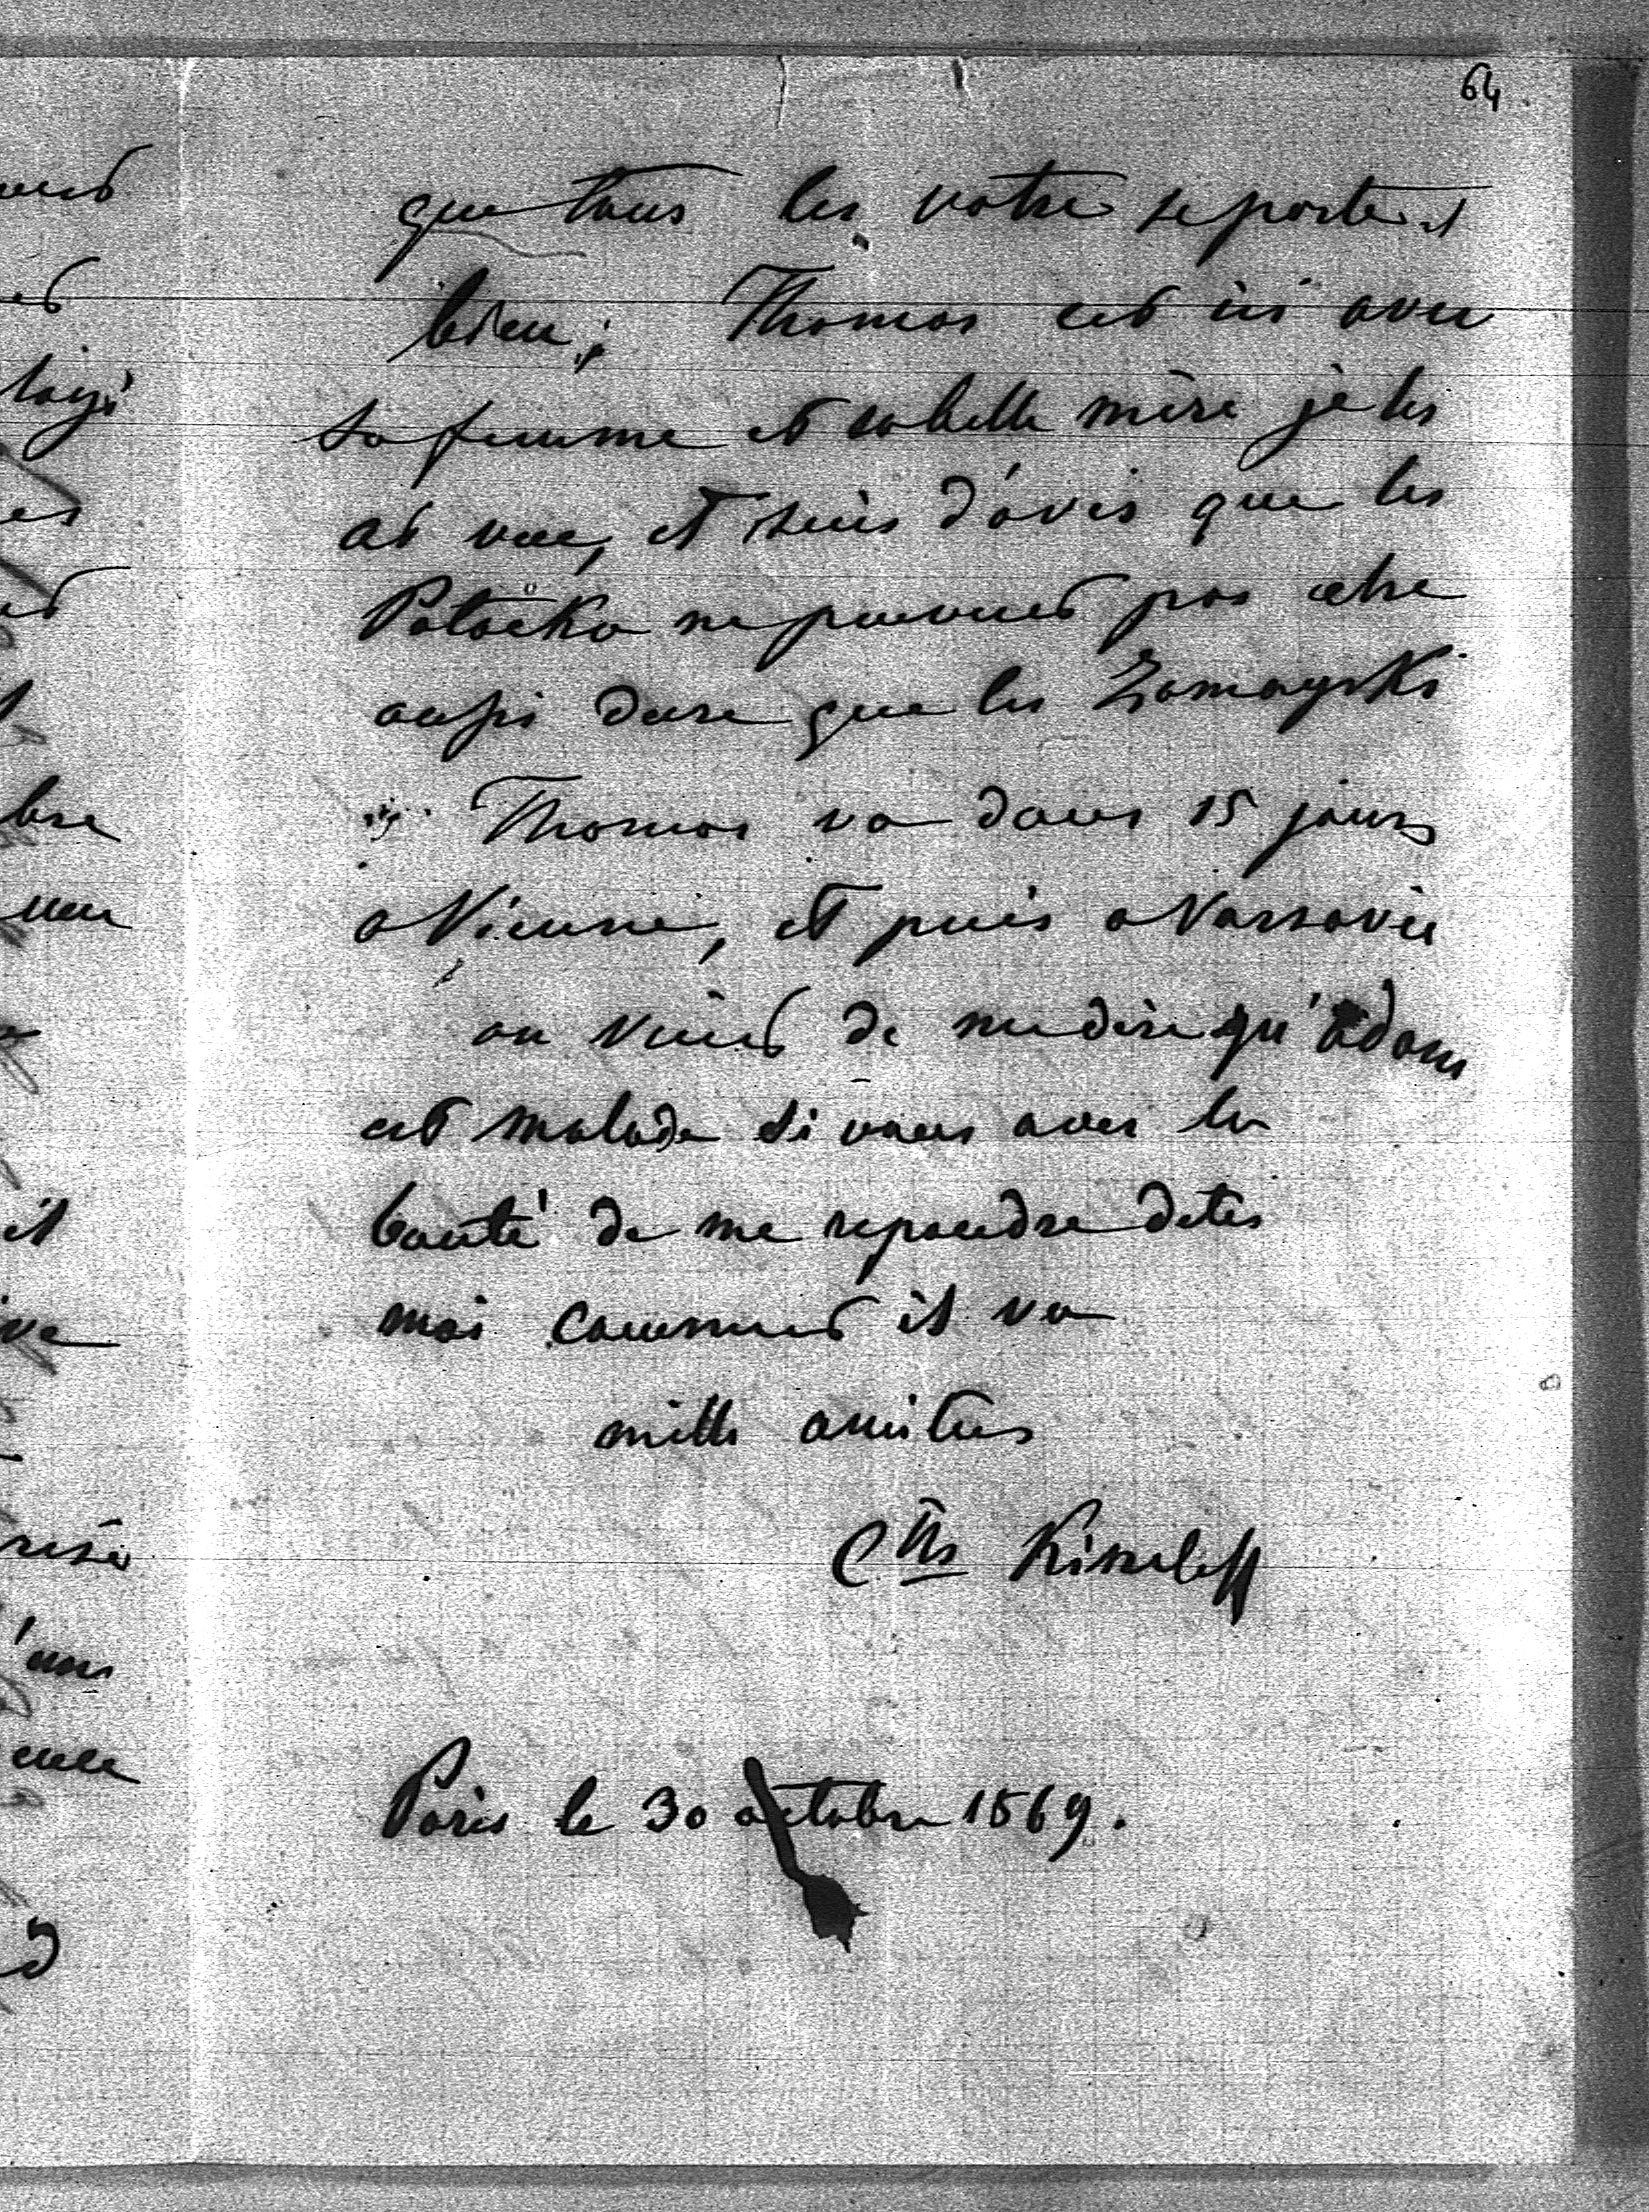 64
que tous les votre se portent
bien; Thomas est ici avec
sa femme et sa belle mère je les
ai vue, et suis d'avis que les
Potocka ne peuvent pas etre
aussi dure que les Zamoyski
Thomas va dans 15 jours
a Vienne, et puis a Varsovie
on vient de me dire qu'Adam
est malade si vous avez la
bonté de me repondre dites
moi comment il va
mille amities
Ctss Kisseleff
Paris le 30 octobre 1869.